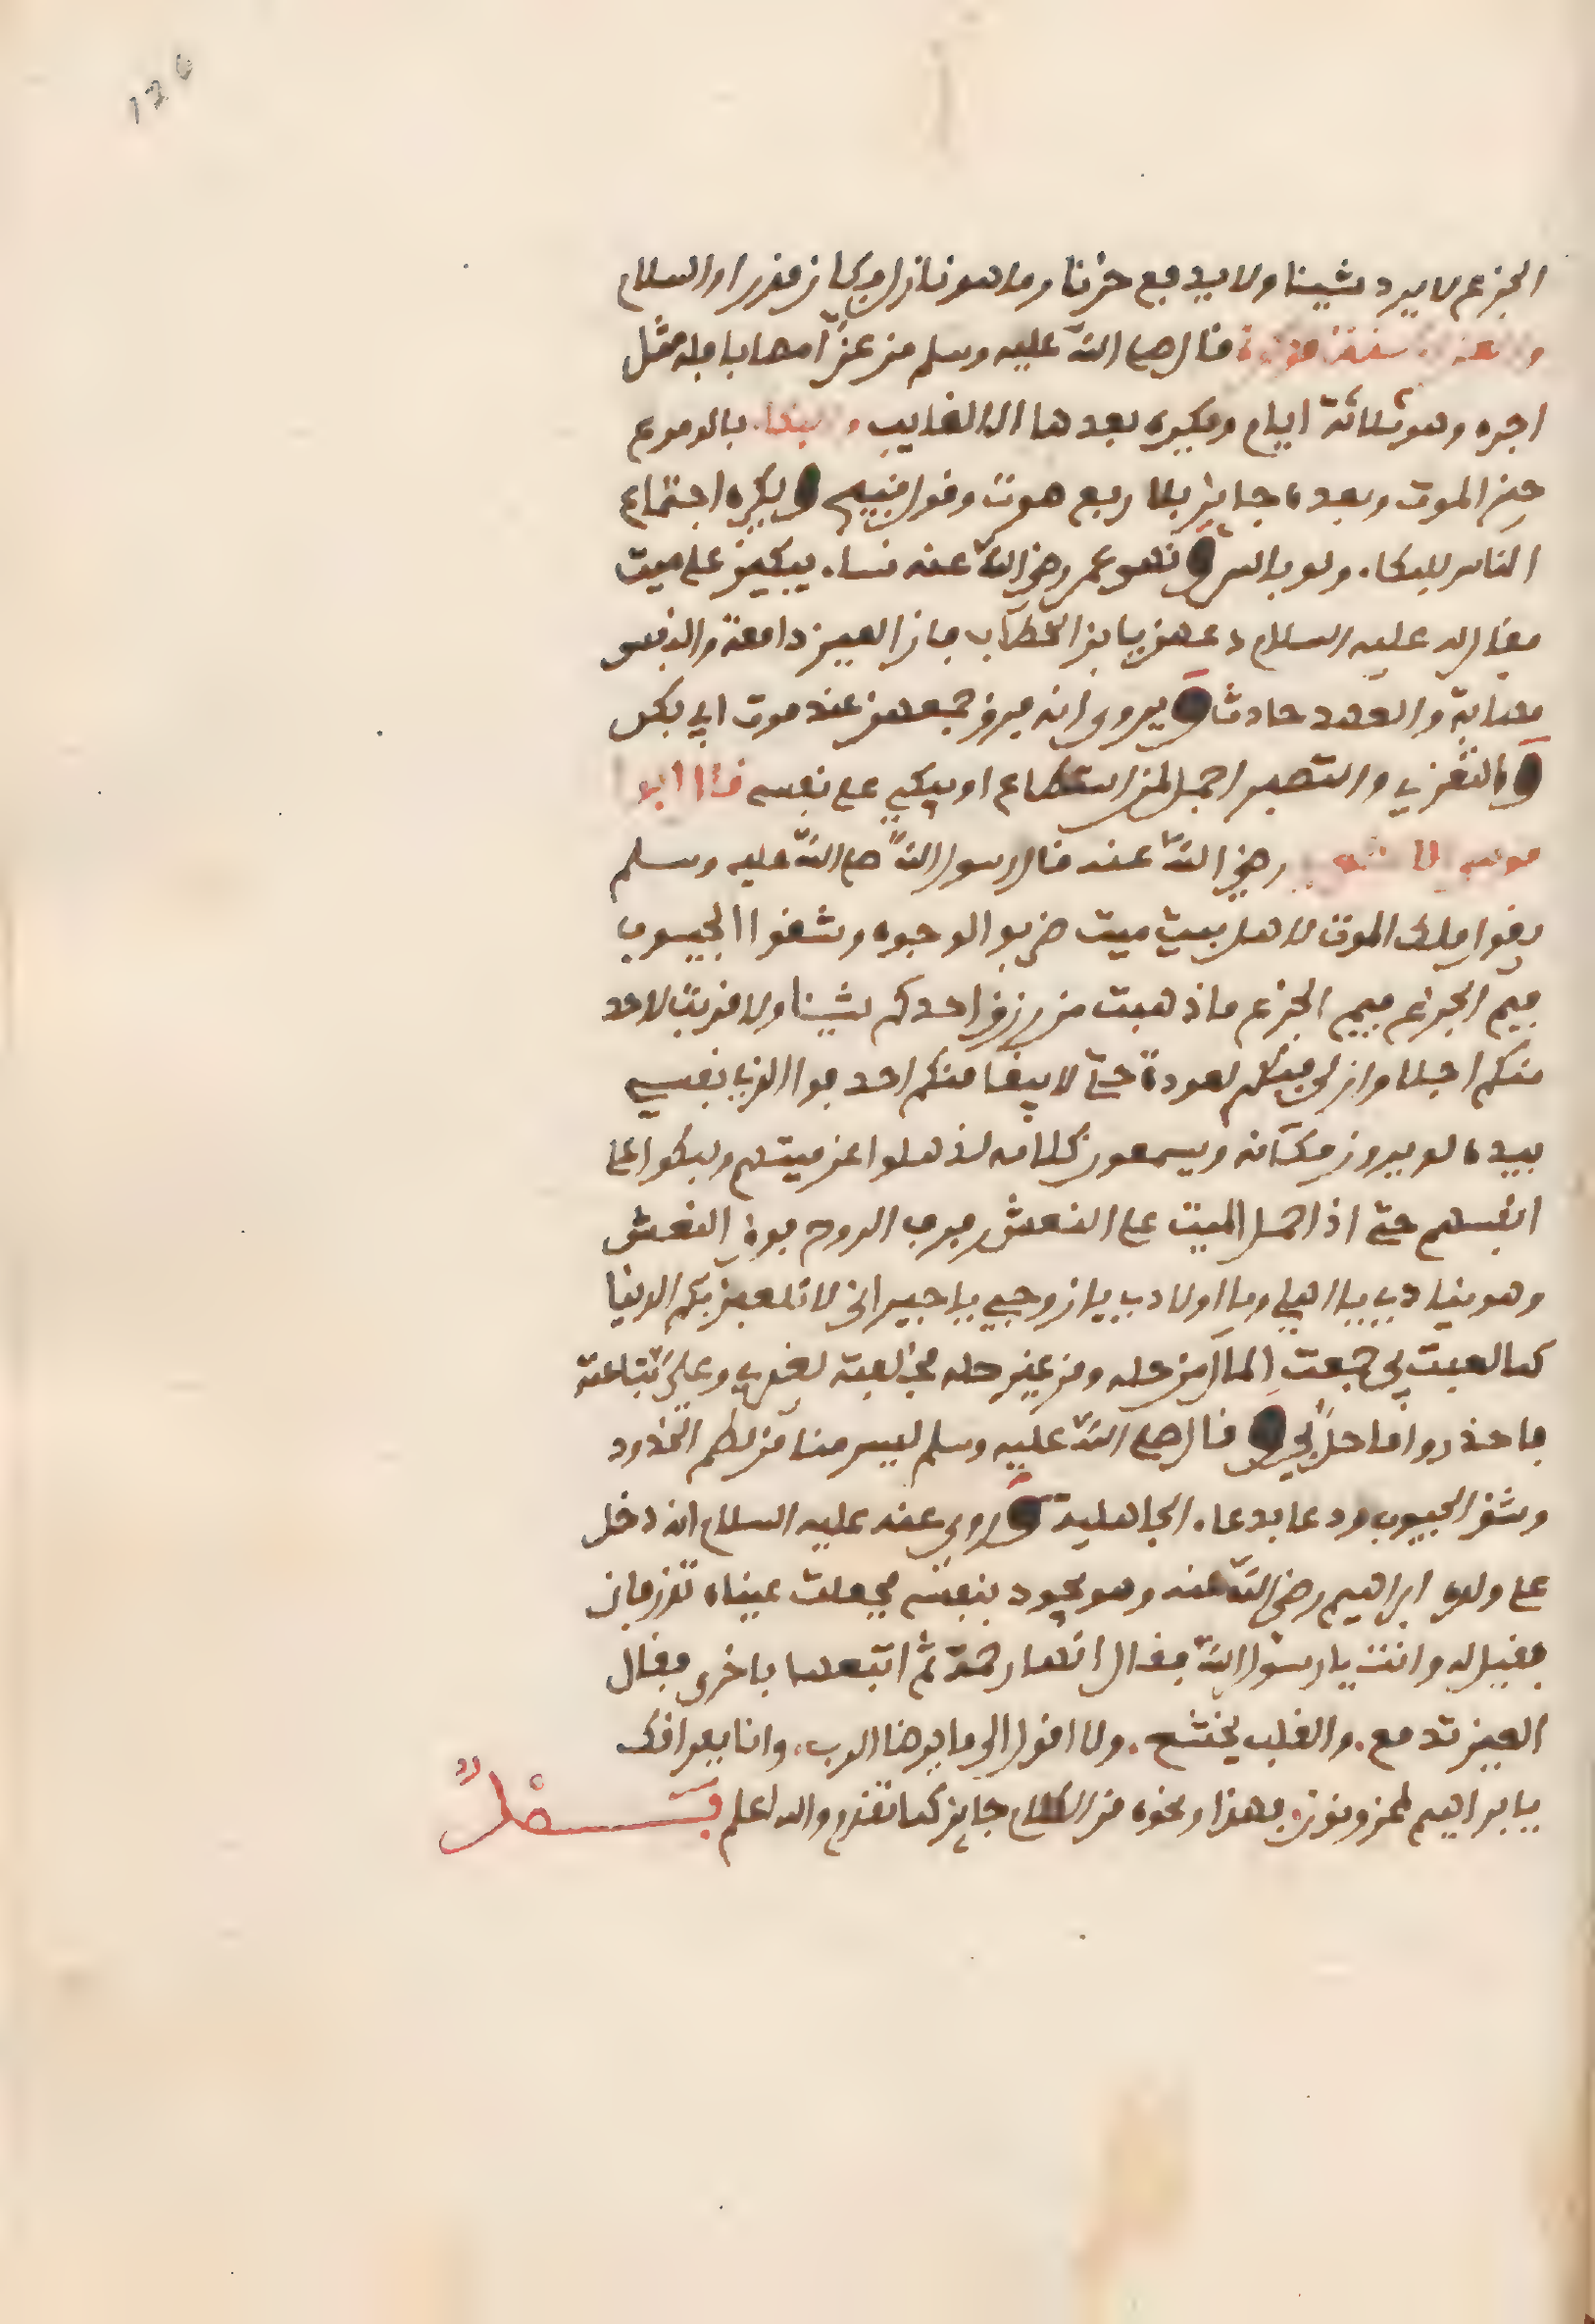 126
الجزع لا يرد شيئا ولا يدفع حزنا وما هو نازل وكان مقدرا والسلام
سنة قال صلى الله عليه وسلم من عزّا مصابا فله مثل
اجره وهو ثلاثة ايام ويكره بعدها الا لغايب والبكا بالدموع
حين الموت وبعده جايز بلا رفع صوت وقول قبيح ويكره اجتماع
الناس للبكاء ولو بالسر ونهى عمر رضي الله عنه نساء يبكين على ميت
فقال له عليه السلام دعهن يا بن الخطاب فان العين دامعة والنفس
مصابة والعهد حادث ويروى انه فرق جمعهن عند موت ابي بكر
والتعزي والتصبر اجمل لمن استطاع او يبكي على نفسه قال ابوا
موسى الاشعري رضي الله عنه قال رسول الله صلى الله عليه وسلم
يقول ملك الموت لاهل بيت ميت ضربوا الوجوه وشقوا الجيوب
فيم الجزع فيم الجزع ما ذهبت من رزق احدكم شيئا ولا قربت لاحد
منكم اجلا وان لي فيكم لعودة حتى لا يبقا منكم احد فوا الذي نفسي
بيده لو يرون مكانه ويسمعون كلامه لذهلوا عن ميتهم ولبكوا على
انفسهم حتى اذا حمل الميت على النعش رفرف الروح فوق النعش
وهو ينادي يا اهلي ويا اولادي يا زوجي يا جيراني لا تلعبن بكم الدنيا
كما لعبت بي جمعت المال من حله ومن غير حله فخلفته لغيري وعلي تباعته
فاحذروا ما حل بي وقال صلى الله عليه وسلم ليس منا من لطم الخدود
وشق الجيوب ودعا بدعاء الجاهلية وروي عنه عليه السلام انه دخل
على ولده ابراهيم رضي الله عنه وهو يجود بنفسه فجعلت عيناه تذرفان
فقيل له وانت يا رسول الله فقال انها رحمة ثم اتبعها باخرى فقال
العين تدمع والقلب يخشع ولا اقول الا ما يرضا الرب وانا بفراقك
يا براهيم لمحزونون فهذا ونحوه من الكلام جايز كما تقدم والله اعلم فصل